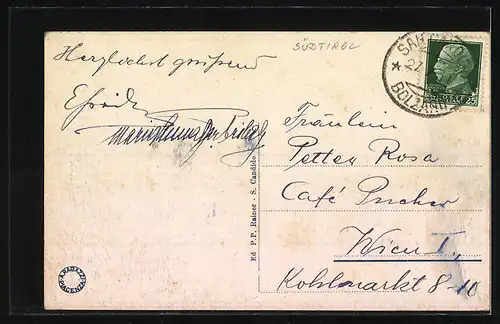 SÜDTIROL
SAN CANDIDO
22
BOLZANO
25
Herzlichst grüßend
Fräulein
Petter Rosa
Café Pucher
Wien I.,
Kohlmarkt 8-10
Ed P. P. Rainer - S. Candido
RAGAZZI
PIACENZA